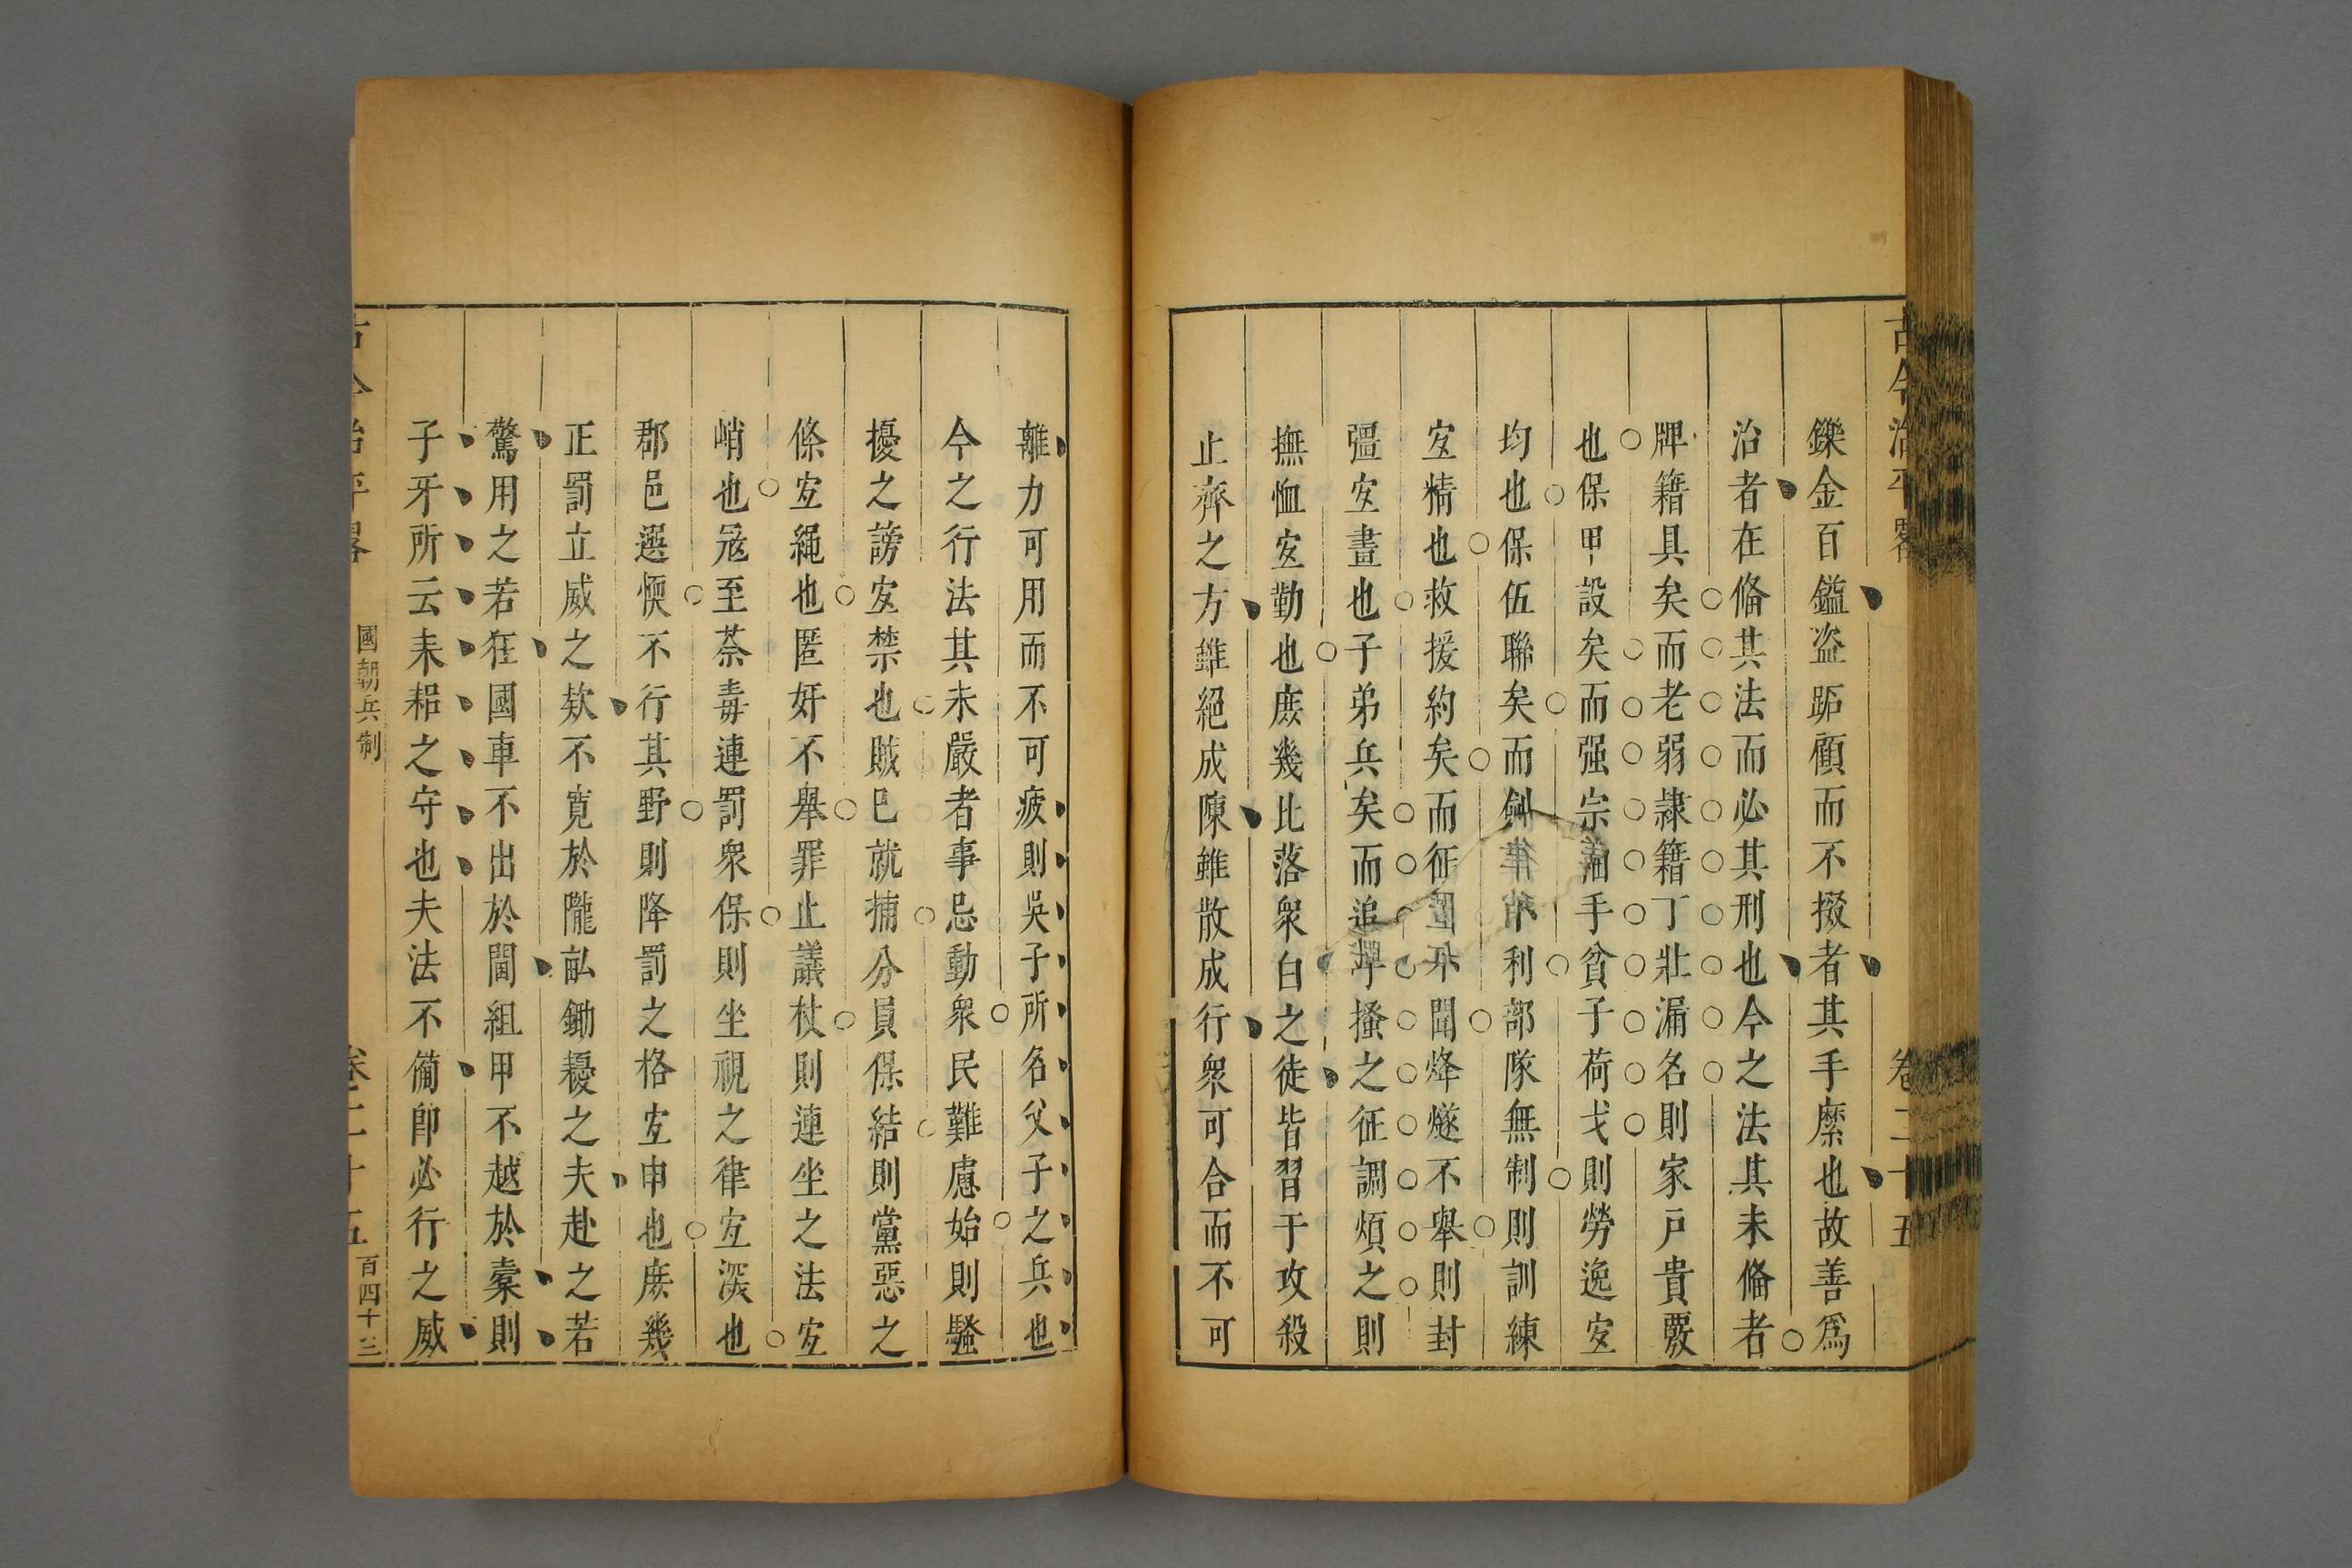 古今治平畧 卷二十五
鑠金百鎰盜跖顧而不掇者其手縻也故善爲
治者在脩其法而必其刑也今之法其未脩者
牌籍具矣而老弱隷籍丁壯漏名則家戸貴覈
也保甲設矣而强宗袖手貧子荷戈則勞逸宐
均也保伍聯矣而無制則訓練
宐精也救援約矣而征鼓不聞烽燧不舉則封
彊宐畫也子弟兵矣而追呼搔之征調煩之則
撫恤宐勤也庻幾比落衆白之徒皆習于攻殺
止齊之方雖絕成陳雖散成行衆可合而不可
離力可用而不可疲則吳子所名父子之兵也
今之行法其未嚴者事忌動衆民難慮始則騷
擾之謗宐禁也賊巳就捕分員保結則黨惡之
條宐繩也匿奸不舉罪止議杖則連坐之法宐
峭也冦至荼毒連罰衆保則坐視之律宐深也
郡邑選愞不行其野則降罰之格宐申也庻幾
正罰立威之欵不寬於隴畝鋤耰之夫赴之若
驚用之若狂國車不出於閫組甲不越於櫜則
子牙所云耒耜之守也夫法不僃卽必行之威
古今治平畧 國朝兵制 卷二十五 百四十三